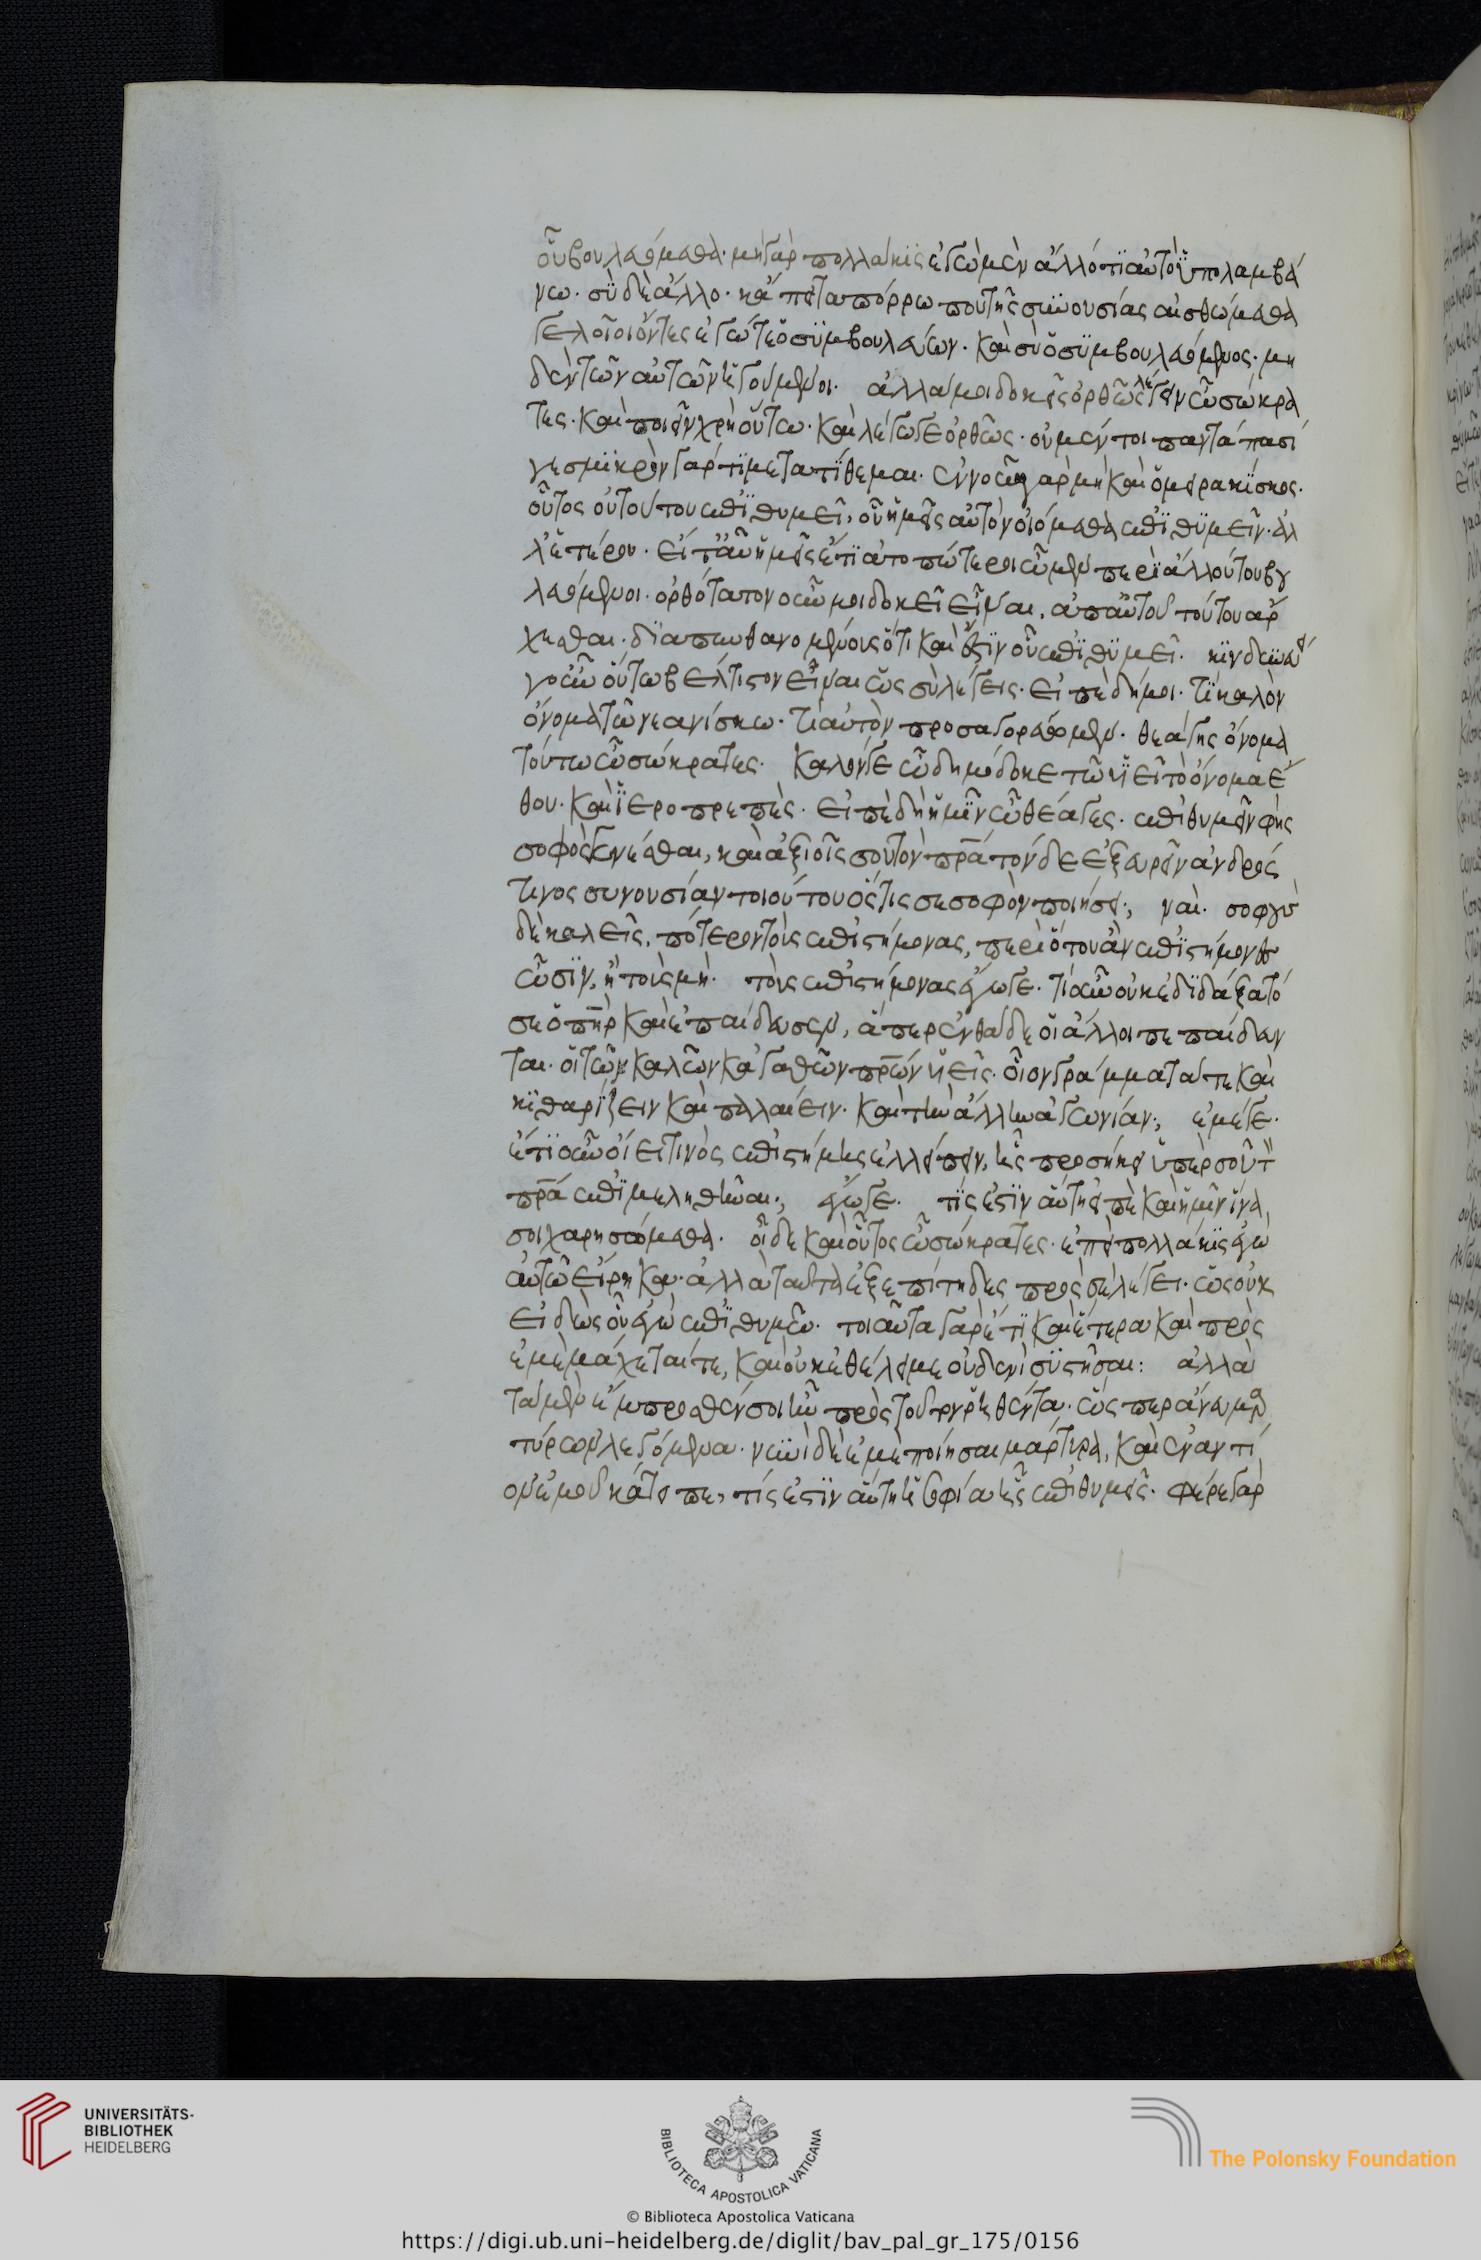 οὗ βουλευόμεθα· μὴ γὰρ πολλάκϊς ἐγὼ μὲν ἄλλό τϊ αὐτὸ ὑπολαμβά
νω· σὺ δὲ ἄλλο· κἄπειτα πόρρω που τῆς συνουσίας αἰσθώμεθα
γελοῖοι ὄντες ἐγώ τε ὁ συμβουλεύων· καὶ σὺ ὁ συμβουλευόμενος· μη
δὲν τῶν αὐτῶν ἡγούμενοι. ἀλλά μοι δοκεῖς ὀρθῶς λέγειν ὦ σώκρα
τες· καὶ ποιεῖν χρὴ οὕτω· καὶ λέγω γε ὀρθῶς· οὐ μέν τοι παντάπασί
γε σμϊκρὸν γάρ τϊ μετατίθεμαι· ἐννοῶ γὰρ μὴ καὶ ὁ μειρακίσκος·
οὗτος οὐ τούτου ἐπϊθυμεῖ, οὗ ἡμεῖς αὐτὸν οἰόμεθα ἐπϊθυμεῖν· ἀλ
λ' ἑτέρου· εἶτ' αὖ ἡμεῖς ἔτϊ ἀτοπώτεροι ὦμεν περὶ ἄλλου του βου
λευόμενοι· ὀρθότατον οὖν μοι δοκεῖ εἶναι, ἀπ' αὐτοῦ τούτου ἄρ
χεσθαι· διαπυνθανομένους ὅτι καὶ ἔστϊν οὗ ἐπϊθυμεῖ. κϊνδυνεύει
γοῦν οὕτω βέλτιστον εἶναι ὡς σὺ λέγεις· εἰπὲ δή μοι· τί καλὸν
ὄνομα τῶ νεανίσκω· τί αὐτὸν προσαγορεύομεν· θεάγης ὄνομα
τούτω ὦ σώκρατες· καλόν γε ὦ δημόδοκε τῶ υἱεῖ τὸ ὄνομα ἔ
θου· καὶ ἱεροπρεπὲς· εἰπὲ δὴ ἡμῖν ὦ θέαγες· ἐπιθυμεῖν φὴς
σοφὸς γενέσθαι, καὶ ἀξιοῖς σου τὸν πρα τόνδε ἐξευρεῖν ἀνδρός
τινος συνουσίαν τοιούτου ὅστις σε σοφὸν ποιήσει; ναί. σοφοὺς
δὲ καλεῖς, πότερον τοὺς ἐπιστήμονας, περὶ ὅτου ἂν ἐπϊστήμονες
ὦσϊν, ἢ τοὺς μή· τοὺς ἐπιστήμονας ἔγωγε· τί οὖν οὐκ ἐδϊδάξατό
σε ὁ πηρ καὶ ἐπαίδευσεν, ἅπερ ἐνθάδε οἱ ἄλλοι πεπαίδευν
ται· οἱ τῶν καλῶν κἀγαθῶν πρων υἱεῖς· οἷον γράμματά τε καὶ
κϊθαρΐζειν καὶ παλαίειν· καὶ τὴν ἄλλην ἀγωνίαν; ἐμέ γε·
ἔτϊ οὖν οἴει τινὸς ἐπιστήμης ἐλλείπειν, ἧς προσήκει ὑπὲρ σοῦ τὸν
πρα ἐπϊμεληθῆναι; ἔγωγε. τίς ἐστϊν αὕτη εἰπὲ καὶ ἡμῖν ἵνα
σοι χαρησώμεθα. οἶδε καὶ οὗτος ὦ σώκρατες· ἐπεὶ πολλάκϊς ἐγὼ
αὐτῶ εἴρηκα· ἀλλὰ ταῦτα ἐξεπίτηδες πρὸς σὲ λέγει· ὡς οὐκ
εἰδὼς οὗ ἐγὼ ἐπϊθυμῶ· τοιαῦτα γὰρ ἔτϊ καὶ ἕτερα καὶ πρὸς
ἐμὲ μάχεταί τε, καὶ οὐκ ἐθέλει με οὐδενὶ συστῆσαι: ἀλλὰ
τὰ μὲν ἔμπροσθέν σοι ἦν πρὸς τοῦτον ῥηθέντα· ὥσπερ ἄνευ μαρ
τύρων λεγόμενα· νυνὶ δὲ ἐμὲ ποίησαι μάρτυρα, καὶ ἐναντί
ον ἐμοῦ κάτειπε, τίς ἐστϊν αὕτη ἡ σοφία ἧς ἐπιθυμεῖς· φέρε γὰρ
UNIVERSITÄTS-
BIBLIOTHEK
HEIDELBERG
BIBLIOTECA APOSTOLICA VATICANA
The Polonsky Foundation
© Biblioteca Apostolica Vaticana
https://digi.ub.uni-heidelberg.de/diglit/bav_pal_gr_175/0156